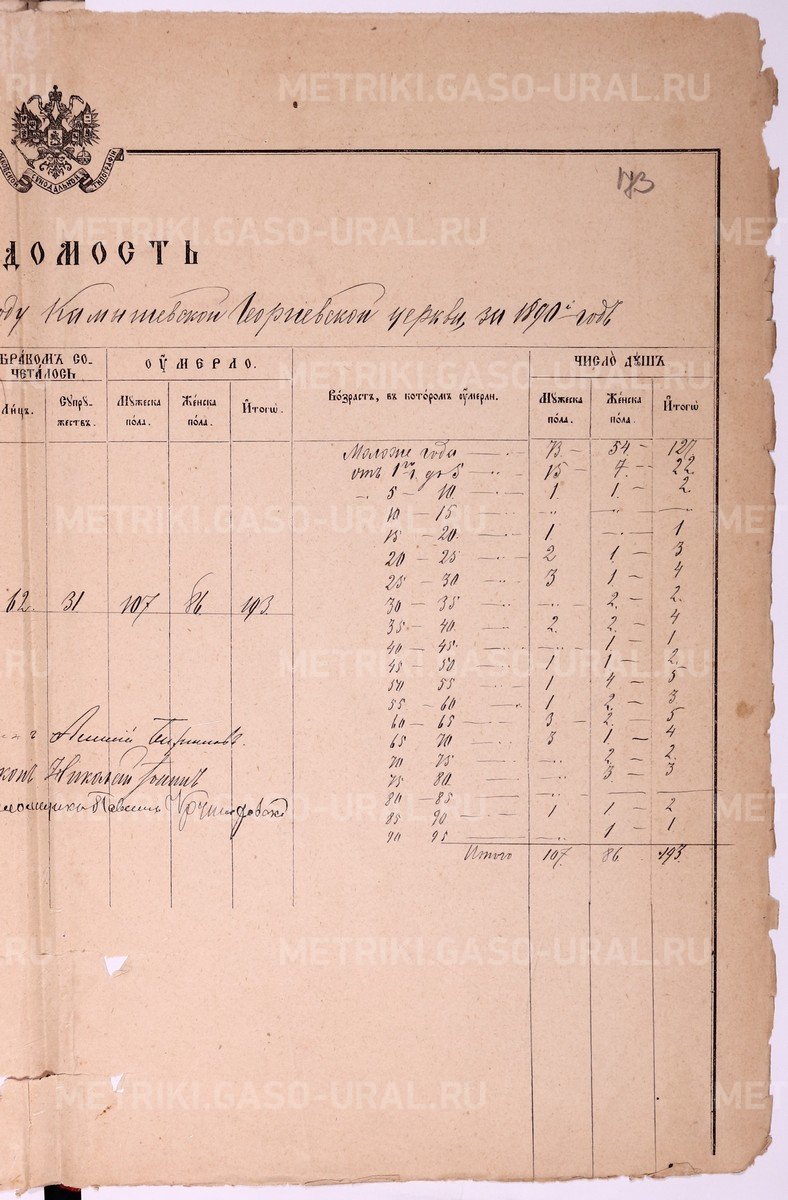 METRIKI.GASO-URAL.RU
СѴНОДАЛЬНОЙ
ТИПОГРАФІИ
173
ДОМОСТЬ
оду Камышевской Георгіевской церкви, за 1890й годъ
БРАКОМЪ СО-
ЧЕТАЛОСЬ
ОУМЕРЛО.
Возрастъ, въ которомъ оумерли.
ЧИСЛО ДУШЪ
Лицъ.
Супру-
жествъ.
Мужеска
пола.
Женска
пола.
Итогѡ.
Мужеска
пола.
Женска
пола.
Итогѡ
Моложе года 73 54 127
отъ 1 г. до 5 15 7 22
5 – 10 1 1 2
10 – 15 .. .. ..
15 – 20 1 .. 1
20 – 25 2 1 3
25 – 30 3 1 4
62. 31 107 86 193
30 – 35 .. 2 2
35 – 40 2 2 4
40 – 45 .. 1 1
45 50 1 1 2
50 55 1 4 5
55 – 60 1 2 3
60 – 65 3 2 5
65 70 3 1 4
70 75 .. 2 2
75 80 .. 3 3
80 – 85 .. .. ..
85 90 1 1 2
90 95 .. 1 1
Итого 107 86 193
Николай
Павелъ